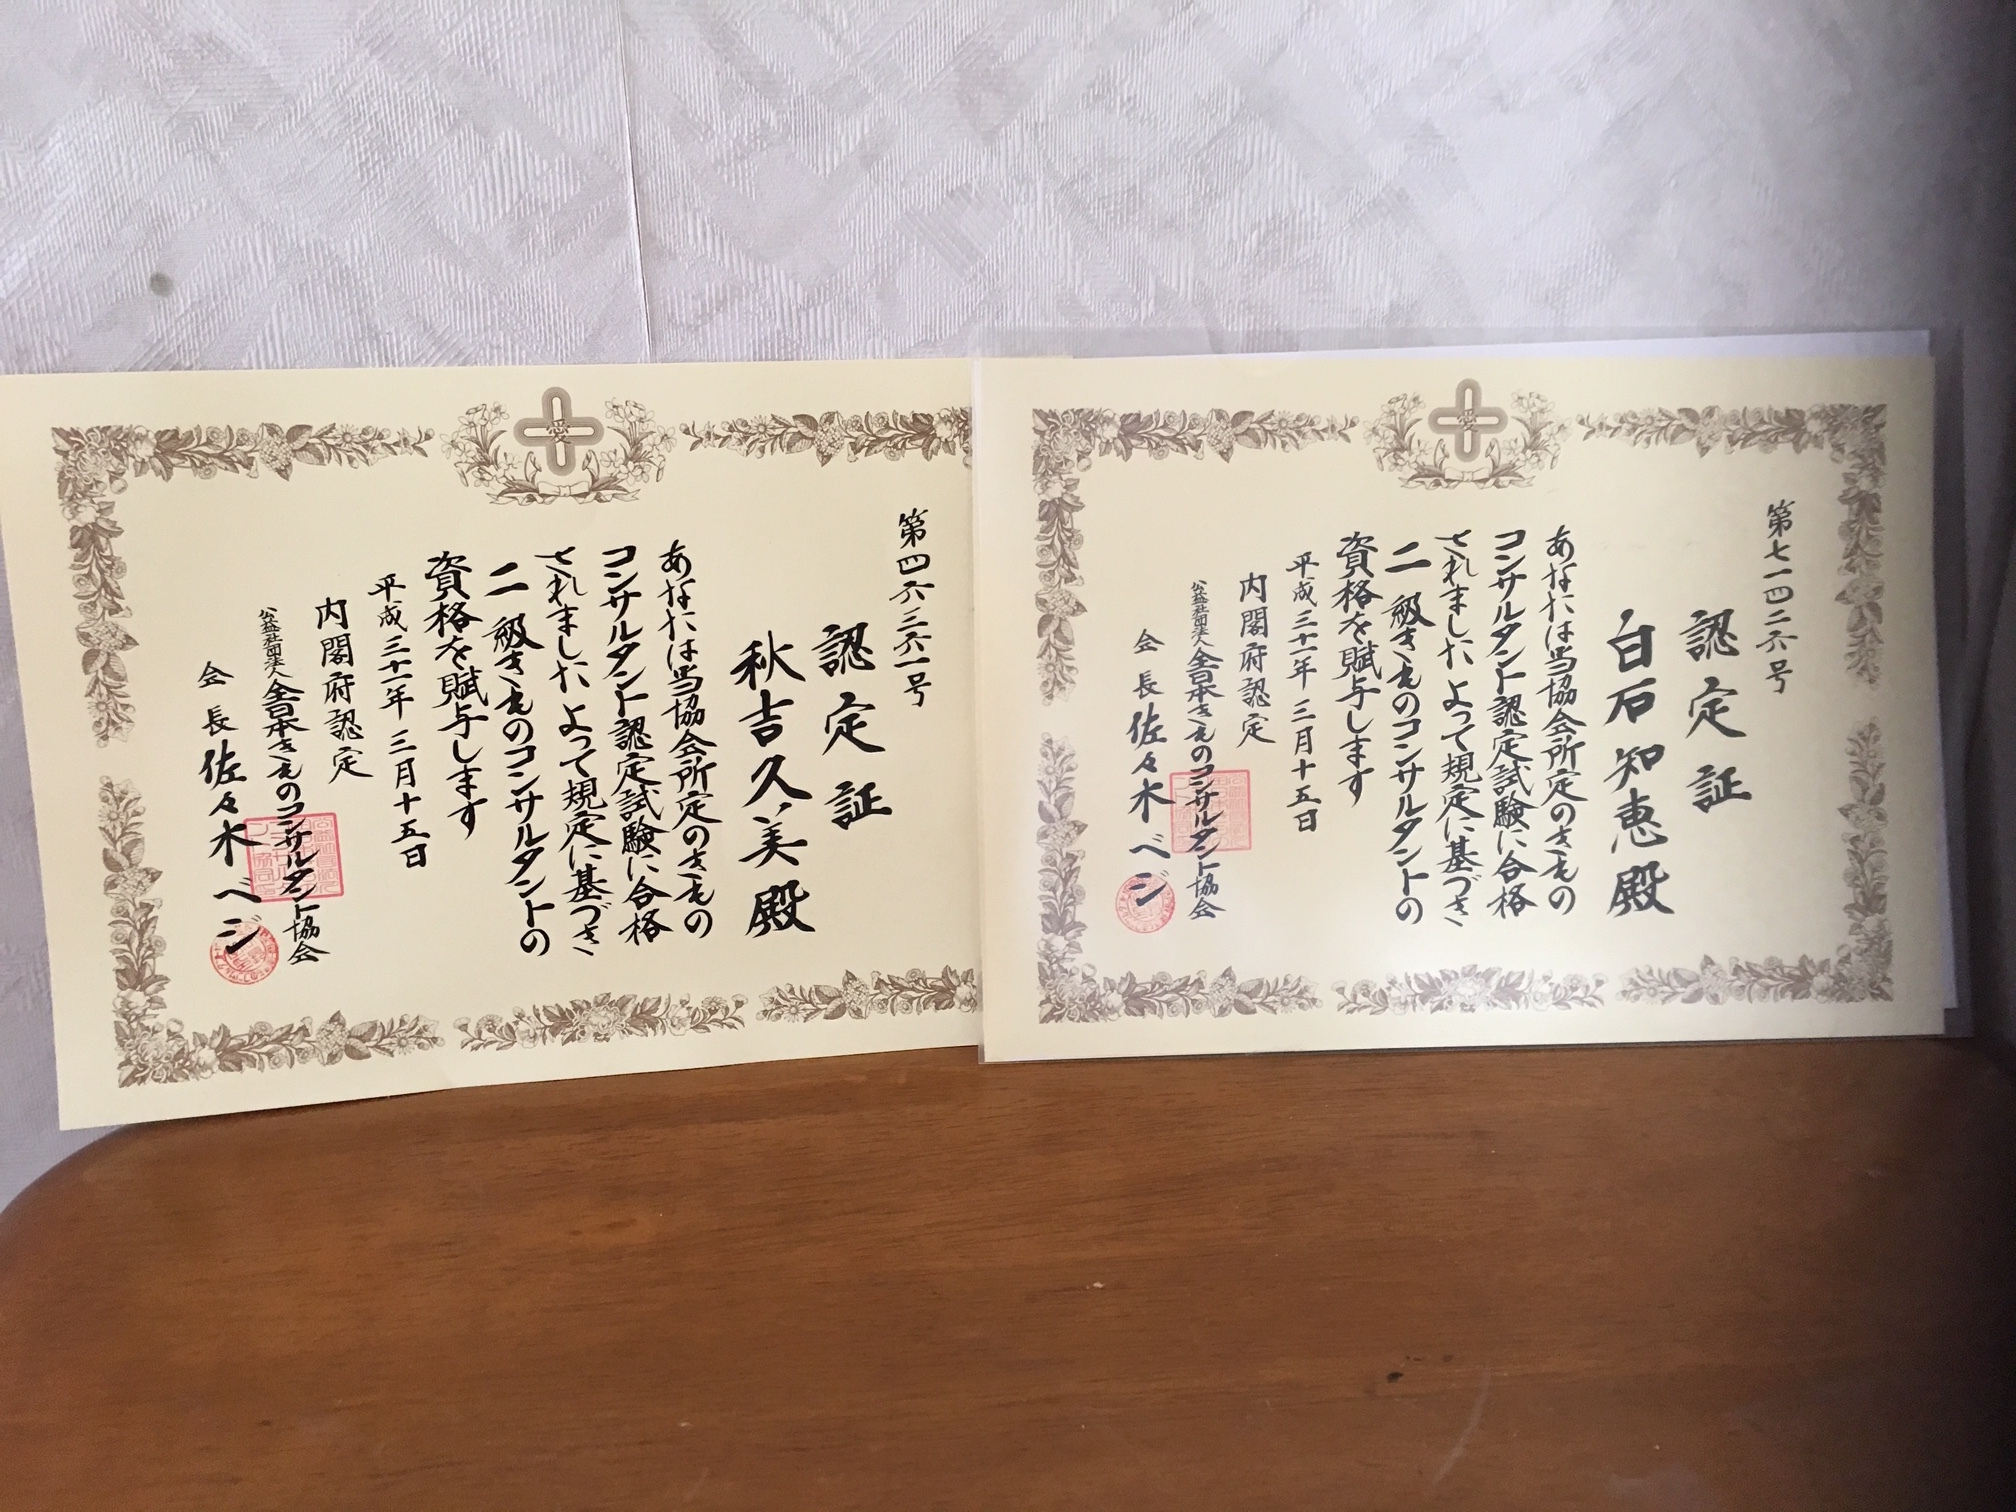 愛
第四六三六一号
認定証
秋吉久美殿
あなたは当協会所定のきもの
コンサルタント認定試験に合格
されました よって規定に基づき
二級きものコンサルタントの
資格を賦与します
平成三十一年三月十五日
内閣府認定
公益社団法人全日本きものコンサルタント協会
会長佐々木ベジ
愛
第七一四二六号
認定証
白石知恵殿
あなたは当協会所定のきもの
コンサルタント認定試験に合格
されました よって規定に基づき
二級きものコンサルタントの
資格を賦与します
平成三十一年三月十五日
内閣府認定
公益社団法人全日本きものコンサルタント協会
会長佐々木ベジ